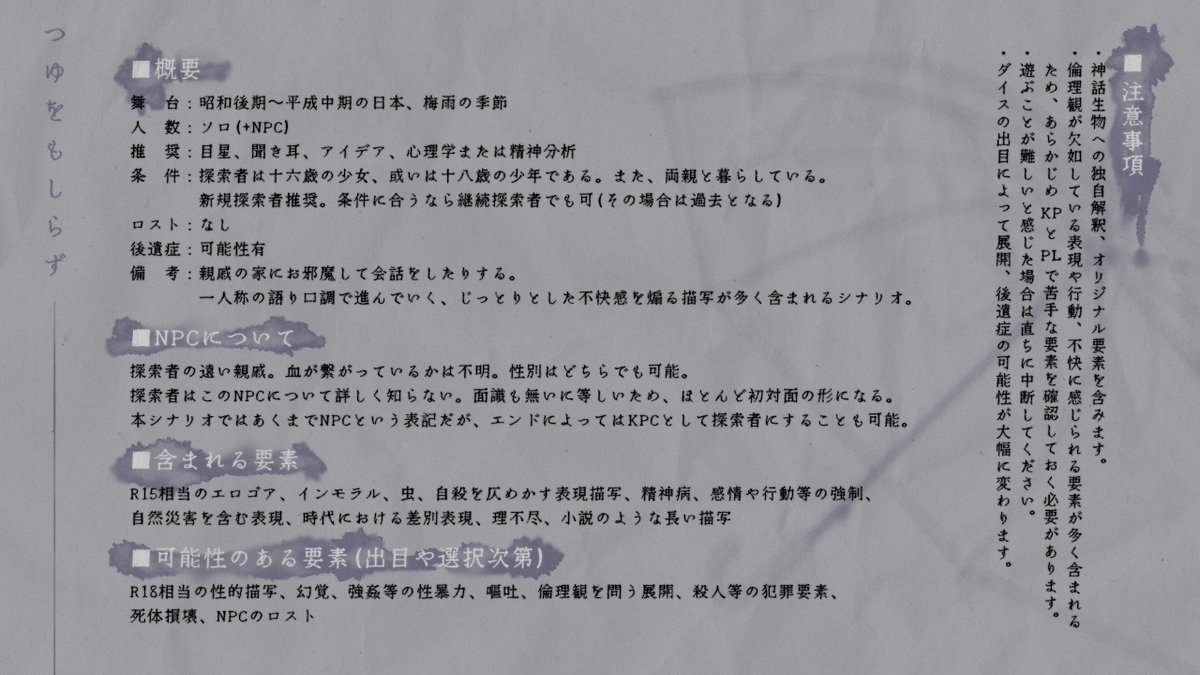 つゆをもしらず
■概要
舞　台：昭和後期～平成中期の日本、梅雨の季節
人　数：ソロ(+NPC)
推　奨：目星、聞き耳、アイデア、心理学または精神分析
条　件：探索者は十六歳の少女、或いは十八歳の少年である。また、両親と暮らしている。
新規探索者推奨。条件に合うなら継続探索者でも可(その場合は過去となる)
ロスト：なし
後遺症：可能性有
備　考：親戚の家にお邪魔して会話をしたりする。
一人称の語り口調で進んでいく、じっとりとした不快感を煽る描写が多く含まれるシナリオ。
■NPCについて
探索者の遠い親戚。血が繋がっているかは不明。性別はどちらでも可能。
探索者はこのNPCについて詳しく知らない。面識も無いに等しいため、ほとんど初対面の形になる。
本シナリオではあくまでNPCという表記だが、エンドによってはKPCとして探索者にすることも可能。
■含まれる要素
R15相当のエログロ、インモラル、虫、自殺を仄めかす表現描写、精神病、感情や行動等の強制、
自然災害を含む表現、時代における差別表現、理不尽、小説のような長い描写
■可能性のある要素(出目や選択次第)
R18相当の性的描写、幻覚、強姦等の性暴力、嘔吐、倫理観を問う展開、殺人等の犯罪要素、
死体損壊、NPCのロスト
■注意事項
・神話生物への独自解釈、オリジナル要素を含みます。
・倫理観が欠如している表現や行動、不快に感じられる要素が多く含まれる
ため、あらかじめKPとPLで苦手な要素を確認しておく必要があります。
・遊ぶことが難しいと感じた場合は直ちに中断してください。
・ダイスの出目によって展開、後遺症の可能性が大幅に変わります。